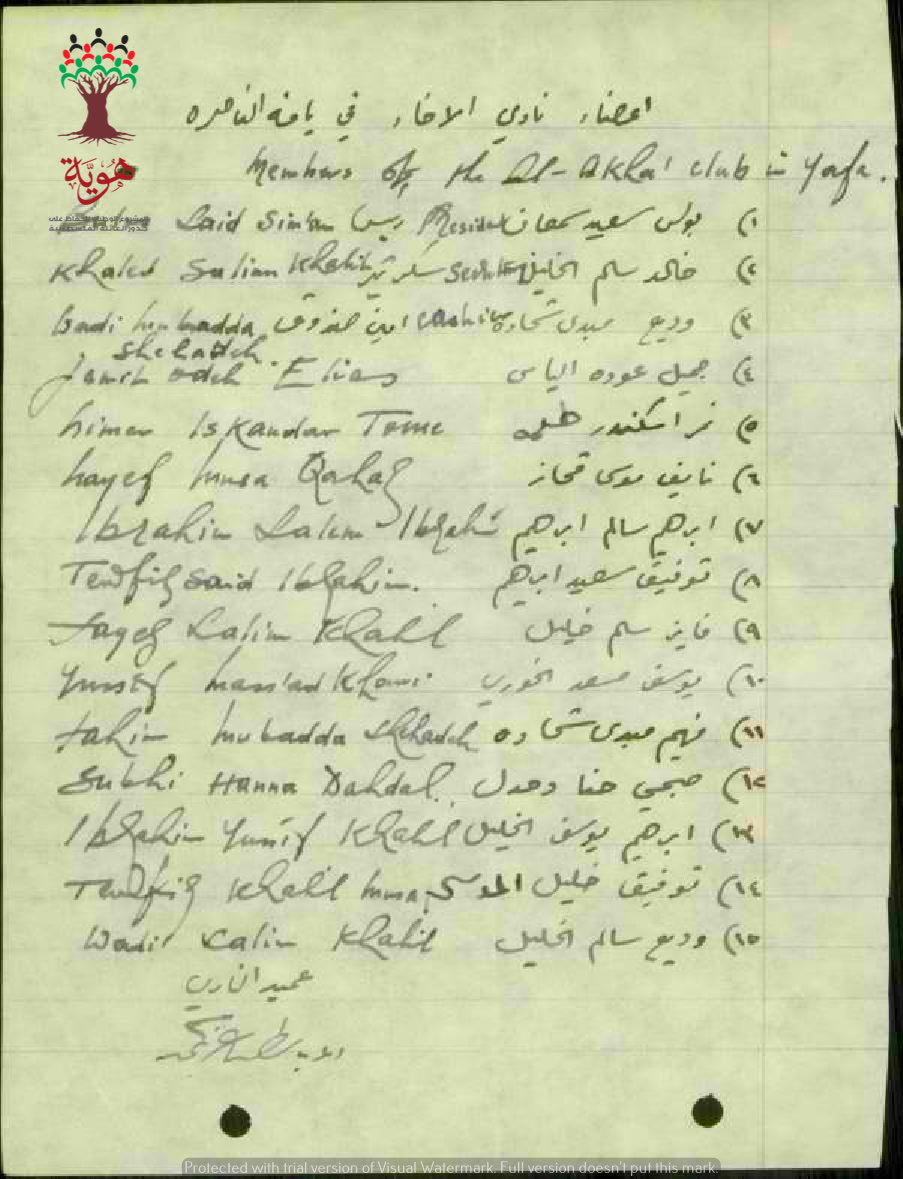 هويّة
اعضاء نادي الاخاء في يافة الناصره
Members of the Al-Akha' club in Yafa.
١) بولس سعيد سمعان President ريس Said Sim'an
٢) خالد سالم الخليل سكرتير Khaled Salim Khalil
٣) وديع مبدى شحاده Cashier امين الصندوق Wadi Mubadda
Shehadeh
٤) جميل عوده الياس Jamil Odeh Elias
٥) نمر اسكندر طعمه Nimer Iskandar Tome
٦) نايف موسى قحاز Nayef Musa Qahaz
٧) ابرهيم سالم ابرهيم Ibrahim Salem Ibrahi
٨) توفيق سعيد ابرهيم Tewfiq Said Ibrahim.
٩) فايز سليم خليل Fayez Salim Khalil
١٠) يوسف مسعد الخوري Yussef Mass'ad Khouri
١١) فهيم مبدى شحاده Fahim Mubadda Shehadeh
١٢) صبحي حنا دحدل Subhi Hanna Dahdal.
١٣) ابرهيم يوسف الخليل Ibrahim Yussif Khalil
١٤) توفيق خليل الموسى Tewfiq Khalil Musa
١٥) وديع سالم الخليل Wadi' Salim Khalil
عميد النادي
Protected with trial version of Visual Watermark. Full version doesn't put this mark.